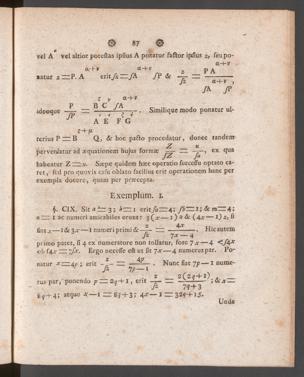 87
vel A vel altior potestas ipsius A ponatur factor ipsius z, seu po-
natur z = P. A^{α+ν} erit ſz = ſA^{α+ν} ſP & z/ſz = P A^{α+ν} / ſA^{α+ν} ſP,
ideoque P/ſP = B C ſA^{α+ν} / A E F G. Similique modo ponatur ul-
terius P = B^{ζ+μ} Q, & hoc pacto procedatur, donec tandem
perveniatur ad æquationem hujus formæ Z/ſZ = u/ſu, ex qua
habeatur Z = u. Sæpe quidem hæc operatio ſucceſſu optato ca-
ret, ſed pro quovis caſu oblato facilius erit operationem hanc per
exempla docere, quam per præcepta.
Exemplum. 1.
§. CIX. Sit a = 3; b = 1 erit ſa = 4; ſb = 1; & m = 4;
n = 1 ac numeri amicabiles erunt: 3 (x — 1) z & (4x — 1) z, ſi
ſint x — 1 & 4x — 1 numeri primi & z/ſz = 4x/(7x — 4). Hic autem
primo patet, ſi 4 ex numeratore non tollatur, fore 7x — 4 < ſ4x
ob ſ4x = 7ſx. Ergo neceſſe eſt ut ſit 7x — 4 numerus par. Po-
natur x = 4p; erit z/ſz = 4p/(7p — 1). Nunc fiat 7p — 1 nume-
rus par, ponendo p = 2q + 1, erit z/ſz = 2(2q + 1)/(7q + 3); & x =
8q + 4; atque x — 1 = 8q + 3; 4x — 1 = 32q + 15.
Unde